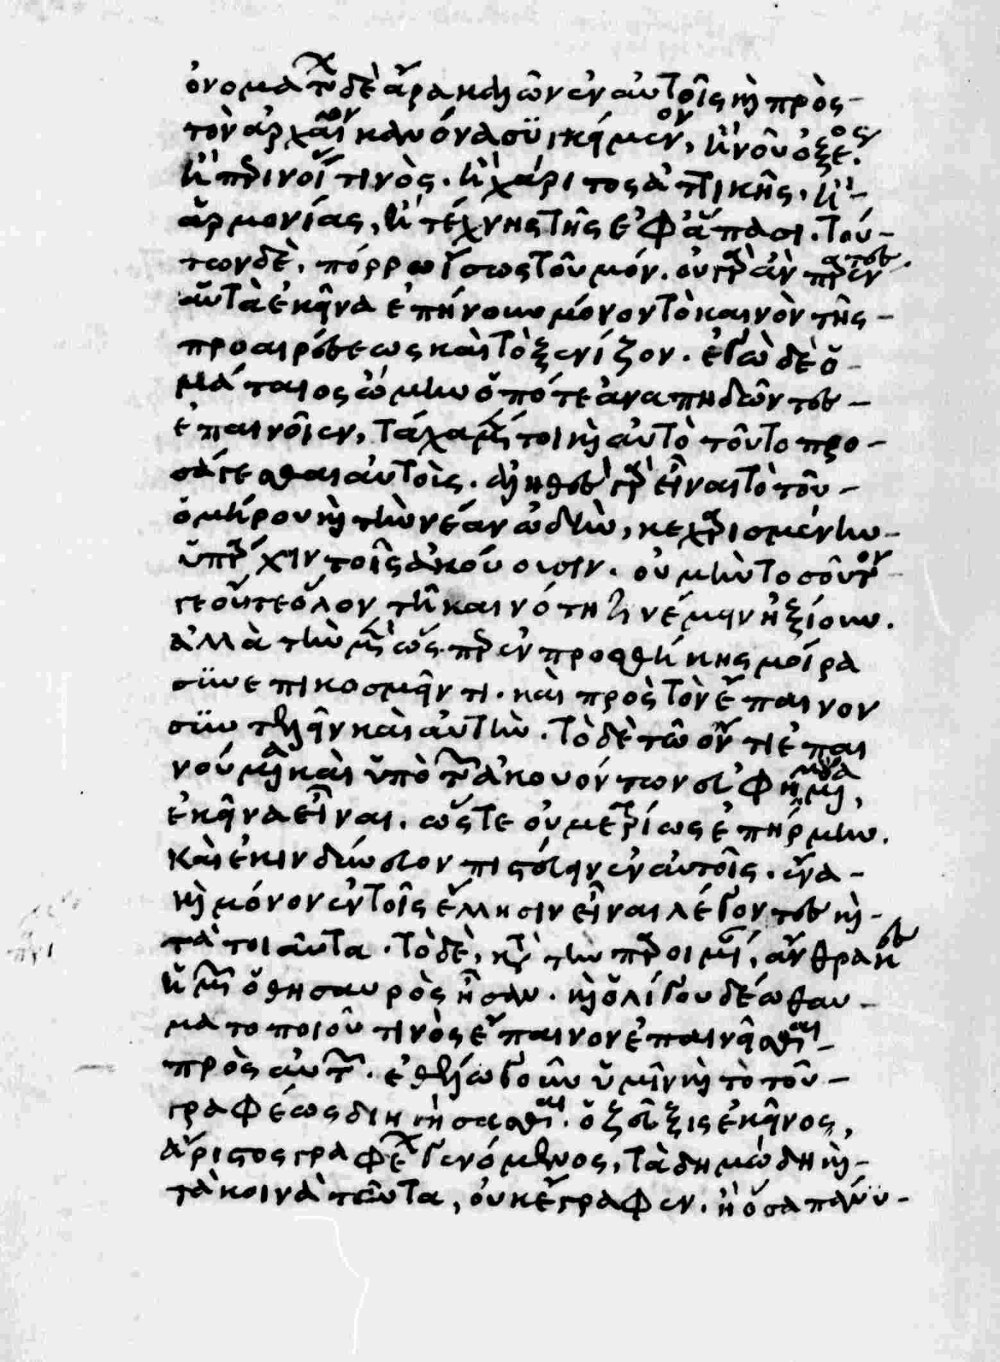 ὀνομάτων δὲ ἄρα καλῶν ἐν αὐτοῖς καὶ πρὸς
τὸν ἀρχαῖον κανόνα συγκειμένων, ἢ νοῦ ὀξέος
ἢ περινοίας τινὸς. ἢ χάριτος ἀττικῆς. ἢ
ἁρμονίας, ἢ τέχνης τῆς ἐφ' ἅπασι. τού-
των δὲ, πόρρω ἴσως τοὐμόν. οὐ γὰρ ἂν παρέντες
αὐτὰ ἐκεῖνα ἐπῄνουν μόνον τὸ καινὸν τῆς
προαιρέσεως καὶ τὸ ξενίζον. ἐγὼ δὲ ὁ
μάταιος ᾤμην ὁπότε ἀναπηδῶντες
ἐπαινοῖεν, τάχα μέν τοι καὶ αὐτὸ τοῦτο προ-
σάγεσθαι αὐτοὺς. ἀληθὲς γὰρ εἶναι τὸ τοῦ
ὁμήρου καὶ τὴν νέαν ᾠδὴν, κεχαρισμένην
ὑπάρχειν τοῖς ἀκούουσιν. οὐ μὴν τοσοῦτον
γε οὔτε ὅλον τῇ καινότητι νέμειν ἠξίουν.
ἀλλὰ τὴν μὲν ὥσπερ ἐν προσθήκης μοίρᾳ
συνεπικοσμεῖν τι. καὶ πρὸς τὸν ἔπαινον
συντελεῖν καὶ αὐτὴν. τὸ δὲ τῷ ὄντι ἐπαι
νούμενα καὶ ὑπὸ τῶν ἀκουόντων εὐφημούμενα,
ἐκεῖνα εἶναι. ὥστε οὐ μετρίως ἐπήρμην.
καὶ ἐκινδύνευον πιστεύειν αὐτοῖς. ἕνα
καὶ μόνον ἐν τοῖς ἕλλησιν εἶναι λέγοντες καὶ
τὰ τοιαῦτα. τὸ δὲ, κατὰ τὴν παροιμίαν, ἄνθρακες
ἡμῶν ὁ θησαυρὸς ἦσαν. καὶ ὀλίγου δέω θαυ-
ματοποιοῦ τινὸς ἔπαινον ἐπαινεῖσθαι
πρὸς αὐτῶν. ἐθέλω γοῦν ὑμῖν καὶ τὸ τοῦ
γραφέως διηγήσασθαι. ὁ ζεῦξις ἐκεῖνος,
ἄριστος γραφέων γενόμενος, τὰ δημώδη καὶ
τὰ κοινὰ ταῦτα, οὐκ ἔγραφεν. ἢ ὅσα πάνυ